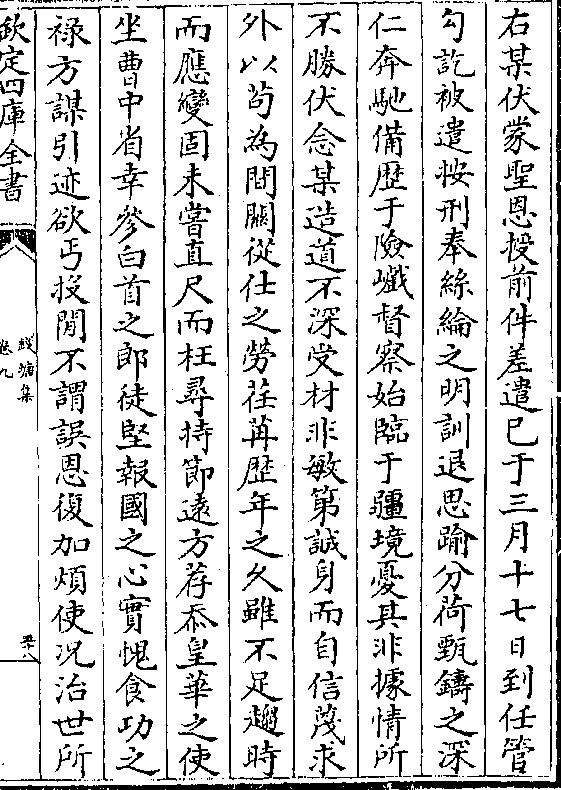 右某伏蒙聖恩授前件差遣已于三月十七日到任管
勾訖被遣按刑奉絲綸之明訓退思踰分荷甄鑄之深
仁奔馳備歴于險巇督察始臨于疆境憂其非據情所
不勝伏念某造道不深受材非敏第誠身而自信蔑求
外以苟為間關從仕之勞荏苒歴年之久雖不足趨時
而應變固未嘗直尺而枉尋持節遠方荐忝皇華之使
坐曹中省幸參白首之郎徒堅報國之心實愧食功之
祿方謀引迹欲丐投閒不謂誤恩復加煩使况治世所
欽定四庫全書
卷九